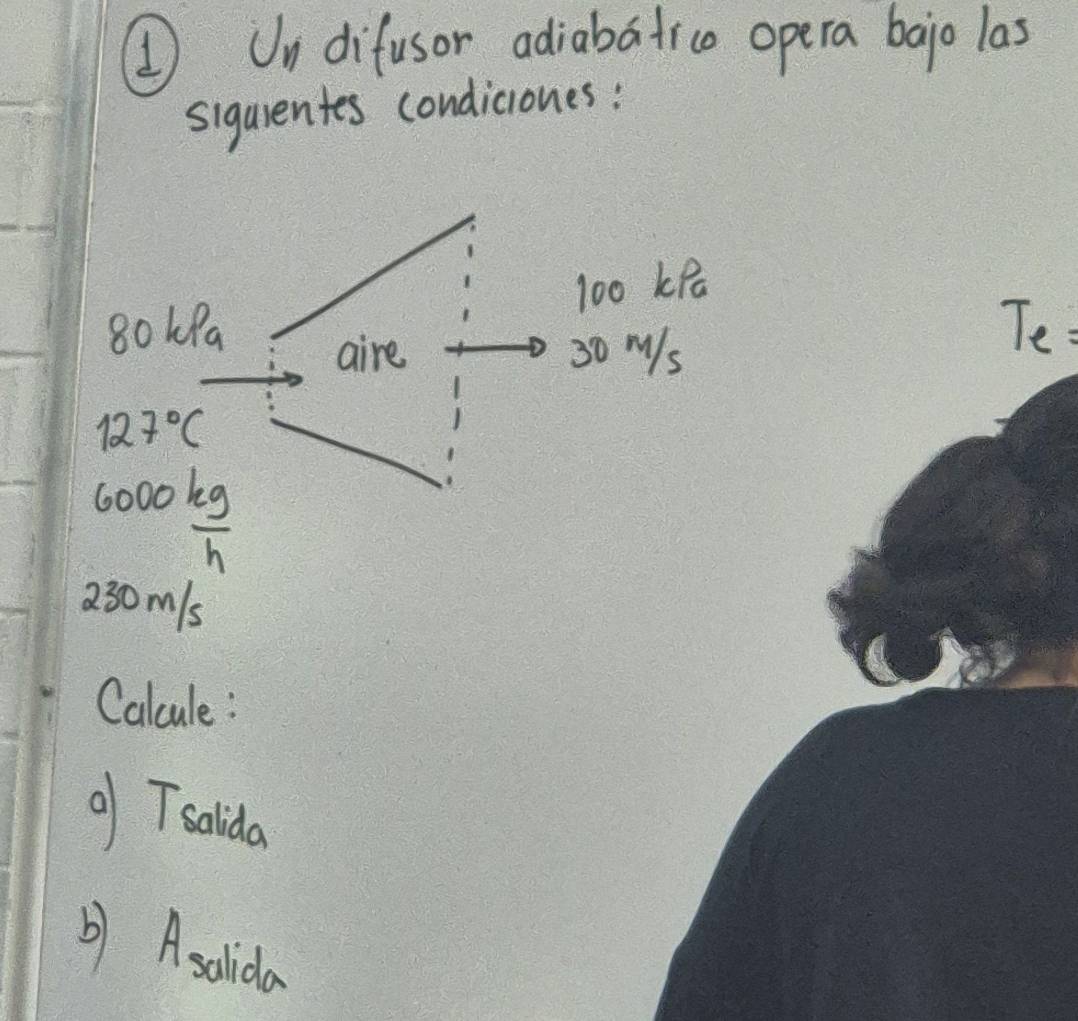 ① Un difusor adiabático opera bajo las
siguientes condiciones:
80 kPa
aire
100 kPa
30 m/s
Te =
127°C
6000 kg/h
230 m/s
Calcule:
a) Tsalida
b) Asalida